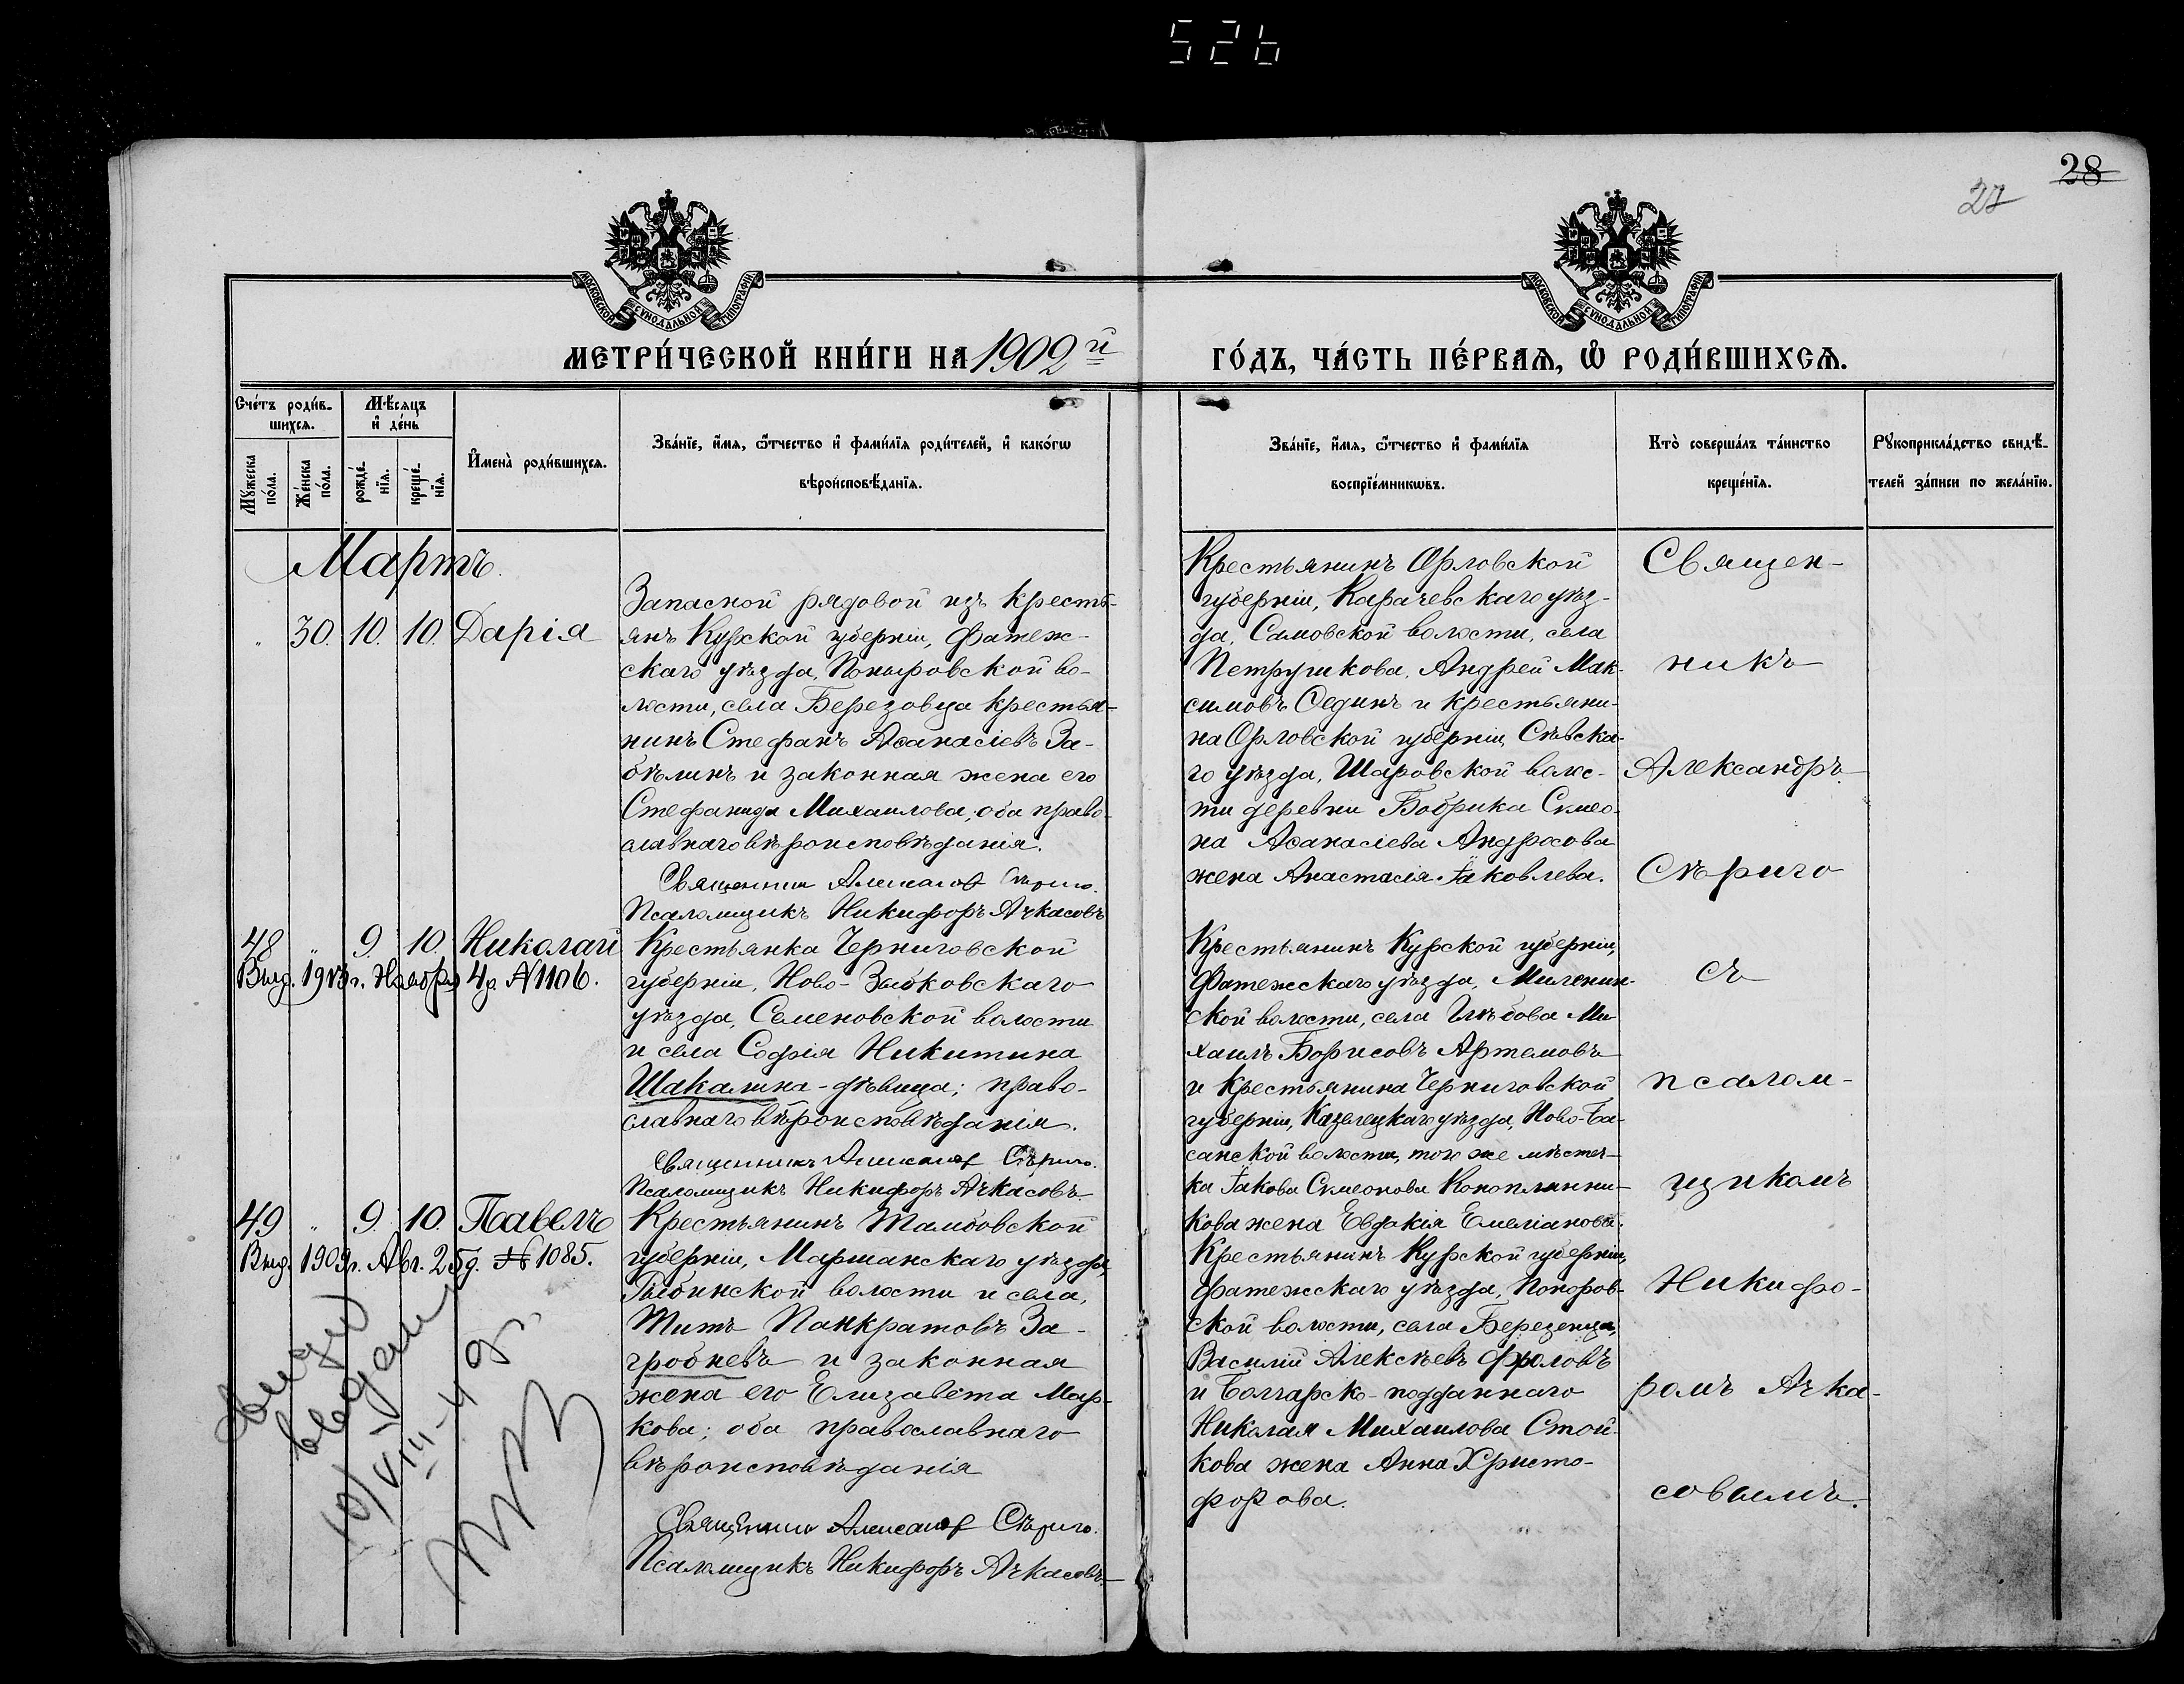 526
28
27
МОСКОВСКОЙ СУНОДАЛЬНОЙ ТИПОГРАФІИ
МОСКОВСКОЙ СУНОДАЛЬНОЙ ТИПОГРАФІИ
МЕТРИ́ЧЕСКОЙ КНИ́ГИ НА 1902й
ГО́ДЪ, ЧА́СТЬ ПЕ́РВАѦ, Ѽ РОДИ́ВШИХСѦ.
Сче́тъ роди́в-
шихсѧ.
Мѣ́сяцъ
и де́нь
Мꙋ́жеска
по́ла.
Же́нска
по́ла.
рожде́-
нїѧ.
креще́-
нїѧ.
И҆мена̀ роди́вшихсѧ.
Зва́нїе, и҆́мѧ, ѻ҆́тчество и҆ фами́лїѧ роди́телей, и҆ како́гѡ
вѣроисповѣ́данїѧ.
Зва́нїе, и҆́мѧ, ѻ҆́тчество и҆ фами́лїѧ
воспрїе́мникѡвъ.
Кто̀ соверша́лъ та́инство
креще́нїѧ.
Рꙋкоприкла́дство свидѣ́-
телей за́писи по жела́нїю.
Мартъ
" 30. 10. 10. Дарія
Запасной рядовой изъ кресть-
янъ Курской губерніи, Фатеж-
скаго уѣзда, Поныровской во-
лости, села Березовца крестья-
нинъ Стефанъ Аѳанасіевъ За-
бѣлинъ и законная жена его
Стефанида Михаилова, оба право-
славнаго вѣроисповѣданія.
Священникъ Александръ Сѣриго.
Псаломщикъ Никифоръ Ачкасовъ
Крестьянинъ Орловской
губерніи, Карачевскаго уѣз-
да, Самовской волости, села
Петрушкова, Андрей Мак-
симовъ Сединъ и крестьяни-
на Орловской губерніи, Сѣвска-
го уѣзда, Шаровской волос-
ти деревни Бобрика Симео-
на Аѳанасіева Андросова
жена Анастасія Іаковлева.
48 " 9. 10. Николай
Выд. 1913 г. Ноября 4 д. № 1106.
Крестьянка Черниговской
губерніи, Ново-Зыбковскаго
уѣзда, Семеновской волости
и села Софія Никитина
Шакалина - дѣвица; право-
славнаго вѣроисповѣданія.
Священникъ Александръ Сѣриго.
Псаломщикъ Никифоръ Ачкасовъ
Крестьянинъ Курской губерніи,
Фатежскаго уѣзда, Миленин-
ской волости, села Глѣбова Ми-
хаилъ Борисовъ Артемовъ
и крестьянина Черниговской
губерніи, Козелецкаго уѣзда, Ново-Ба-
санской волости, того же мѣстеч-
ка Іакова Симеонова Коноплянни-
кова жена Евдокія Емеліанова.
49 " 9. 10. Павелъ
Выд. 1909 г. Авг. 25 д. № 1085.
выдан
10/VIII-49 г.
Крестьянинъ Тамбовской
губерніи, Моршанскаго уѣзда,
Рыбинской волости и села,
Титъ Панкратовъ За-
гробневъ и законная
жена его Елизавета Мар-
кова; оба православнаго
вѣроисповѣданія
Священникъ Александръ Сѣриго.
Псаломщикъ Никифоръ Ачкасовъ
Крестьянинъ Курской губерніи,
Фатежскаго уѣзда, Поноров-
ской волости, села Березенца,
Василій Алексѣевъ Фроловъ
и Болгарско-подданнаго
Николая Михаилова Стой-
кова жена Анна Христо-
форова.
Священ-
никъ
Александръ
Сѣриго
съ
псалом-
щикомъ
Никифо-
ромъ Ачка-
совымъ.